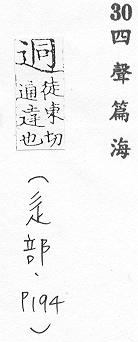 30 四聲篇海
迵 徒東切
通達也
（辵部、P194）